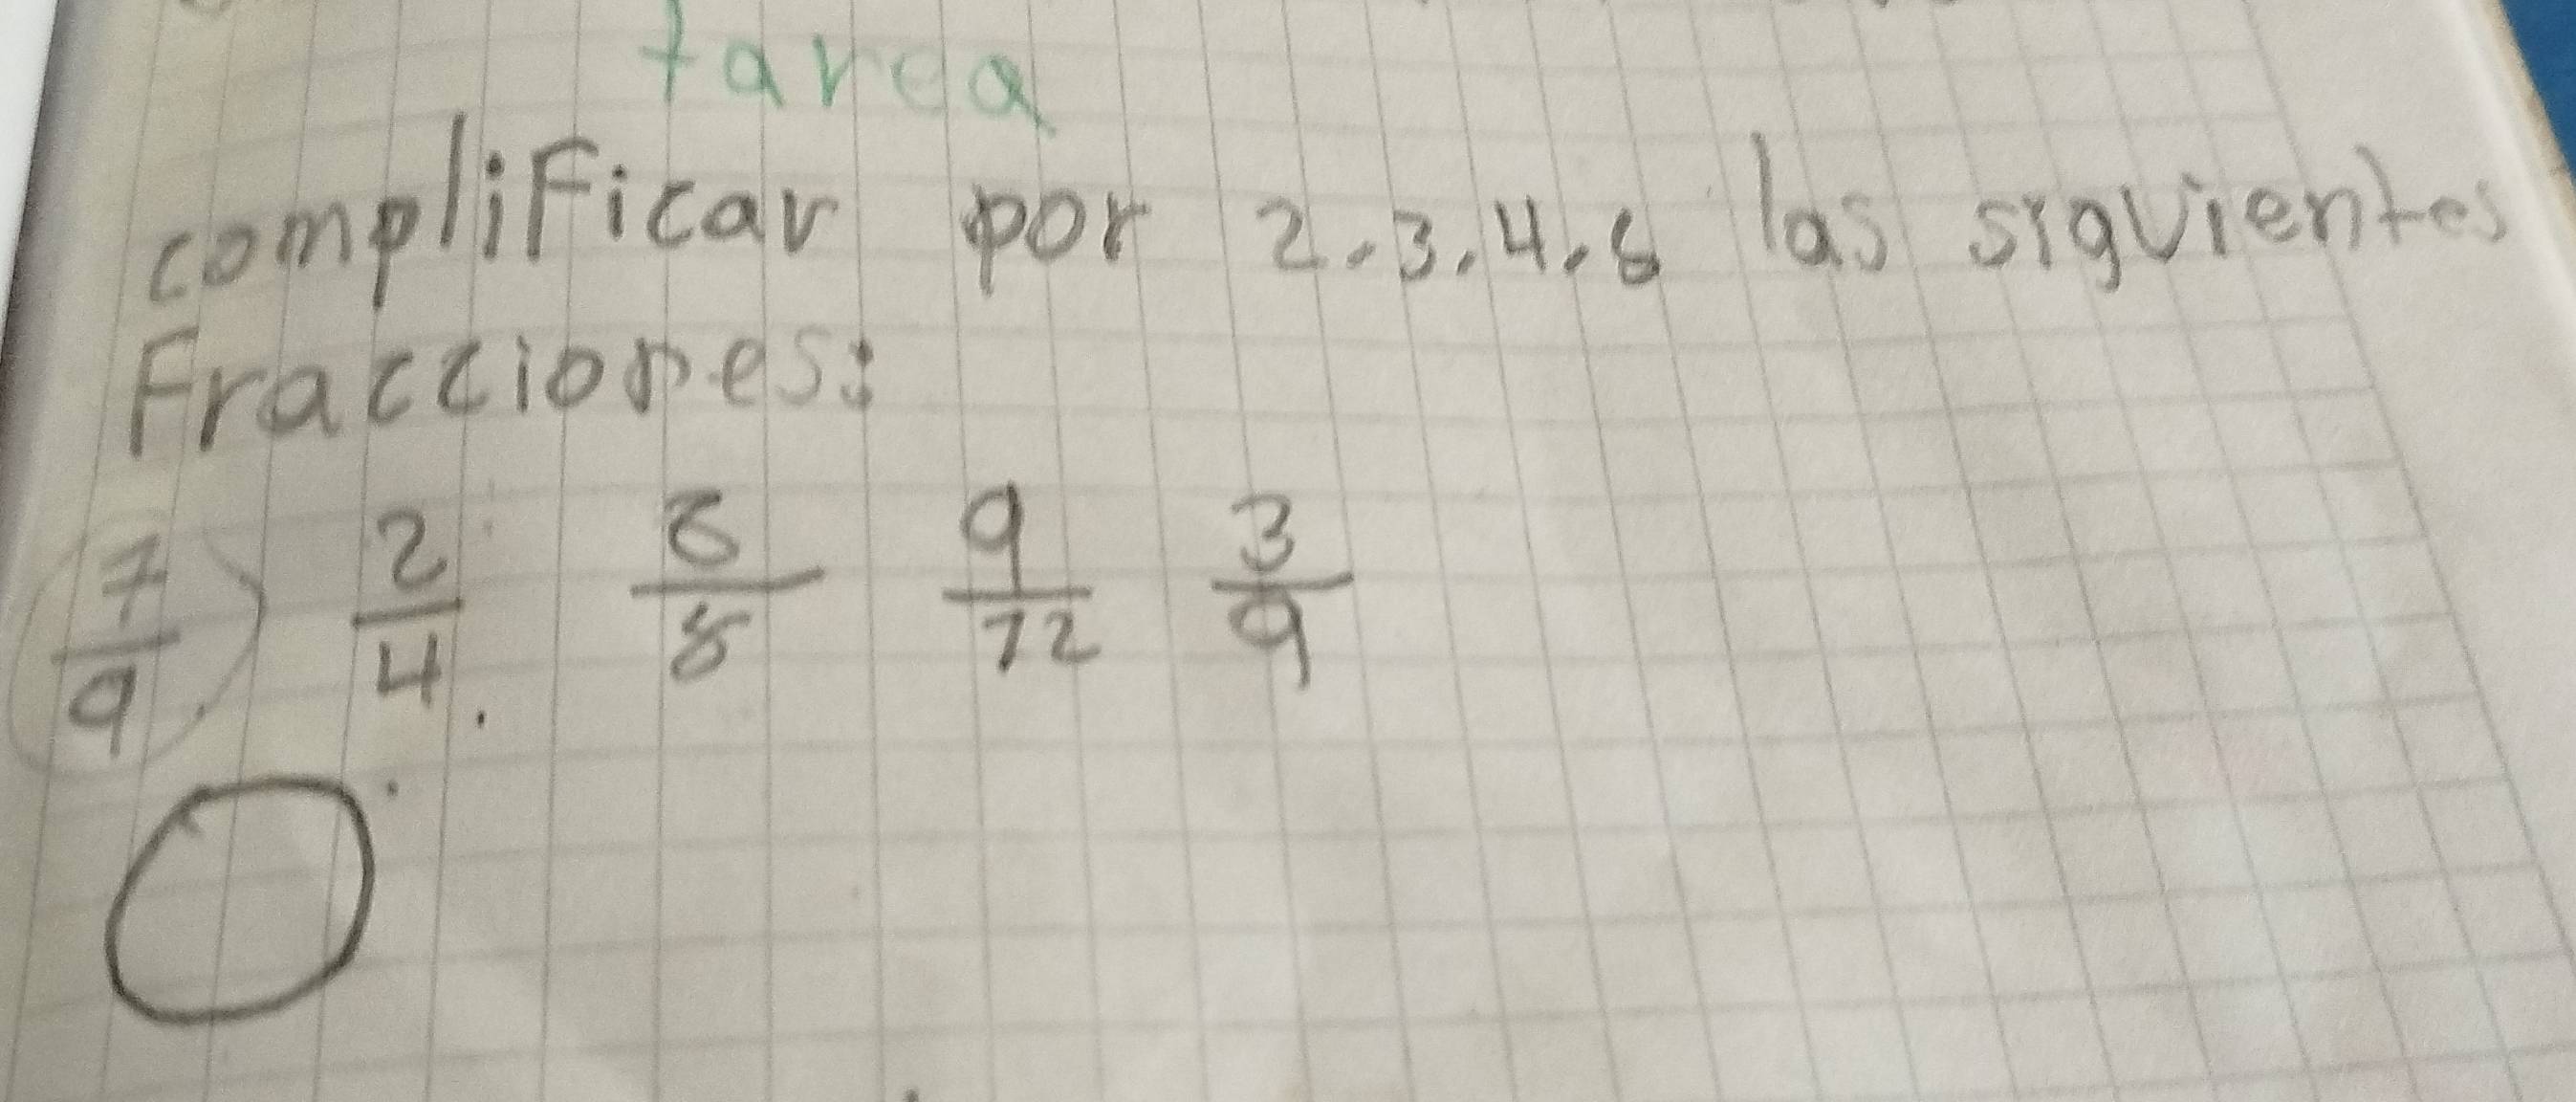 tarea
complificar por 2.3.4.8 las siguientes
Fracciones:
7/9 2/4 8/8 9/12 3/9